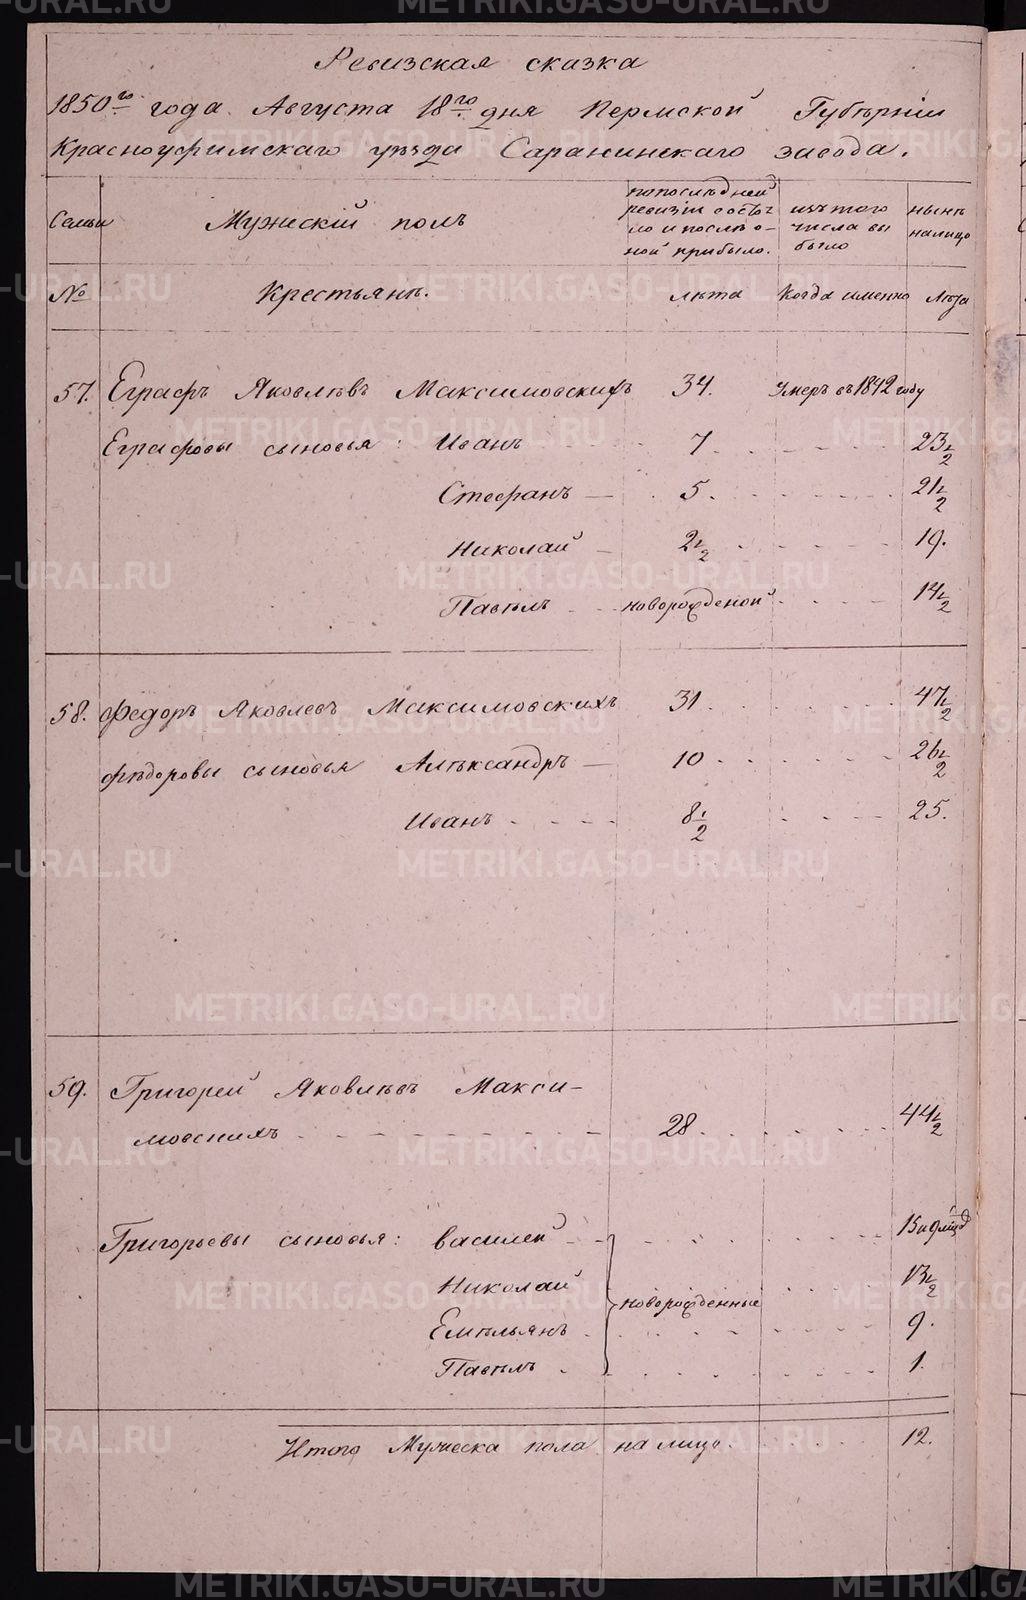 Ревизская сказка
1850го года Августа 18го дня Пермской Губѣрніи
Красноуфимскаго уѣзда Саранинскаго завода.
Семьи Мужескій полъ по послѣдней ревизіи состоя-ло и послѣ о-ной прибыло. изъ того числа вы было нынѣ налицо
№ Крестьянѣ. лѣта Когда именно Лѣта
57. Еграфъ Яковлѣвъ Максимовскихъ 34. Умеръ въ 1842 году
Еграфовы сыновья: Иванъ 7 23 1/2
Стефанъ 5. 21 1/2
Николай 2 1/2 19.
Павѣлъ новорожденой 14 1/2
58. Федоръ Яковлевъ Максимовскихъ 31. 47 1/2
Фѣдоровы сыновья Алѣксандръ 10 26 1/2
Иванъ 8 1/2 25.
59. Григорей Яковлѣвъ Макси-
мовскихъ 28. 44 1/2
Григорьевы сыновья: василей 15 и 9 мѣц
Николай новорожденные 13 1/2
Емѣльянъ 9.
Павѣлъ 1.
Итого Мужеска пола на лицо. 12.
METRIKI.GASO-URAL.RU